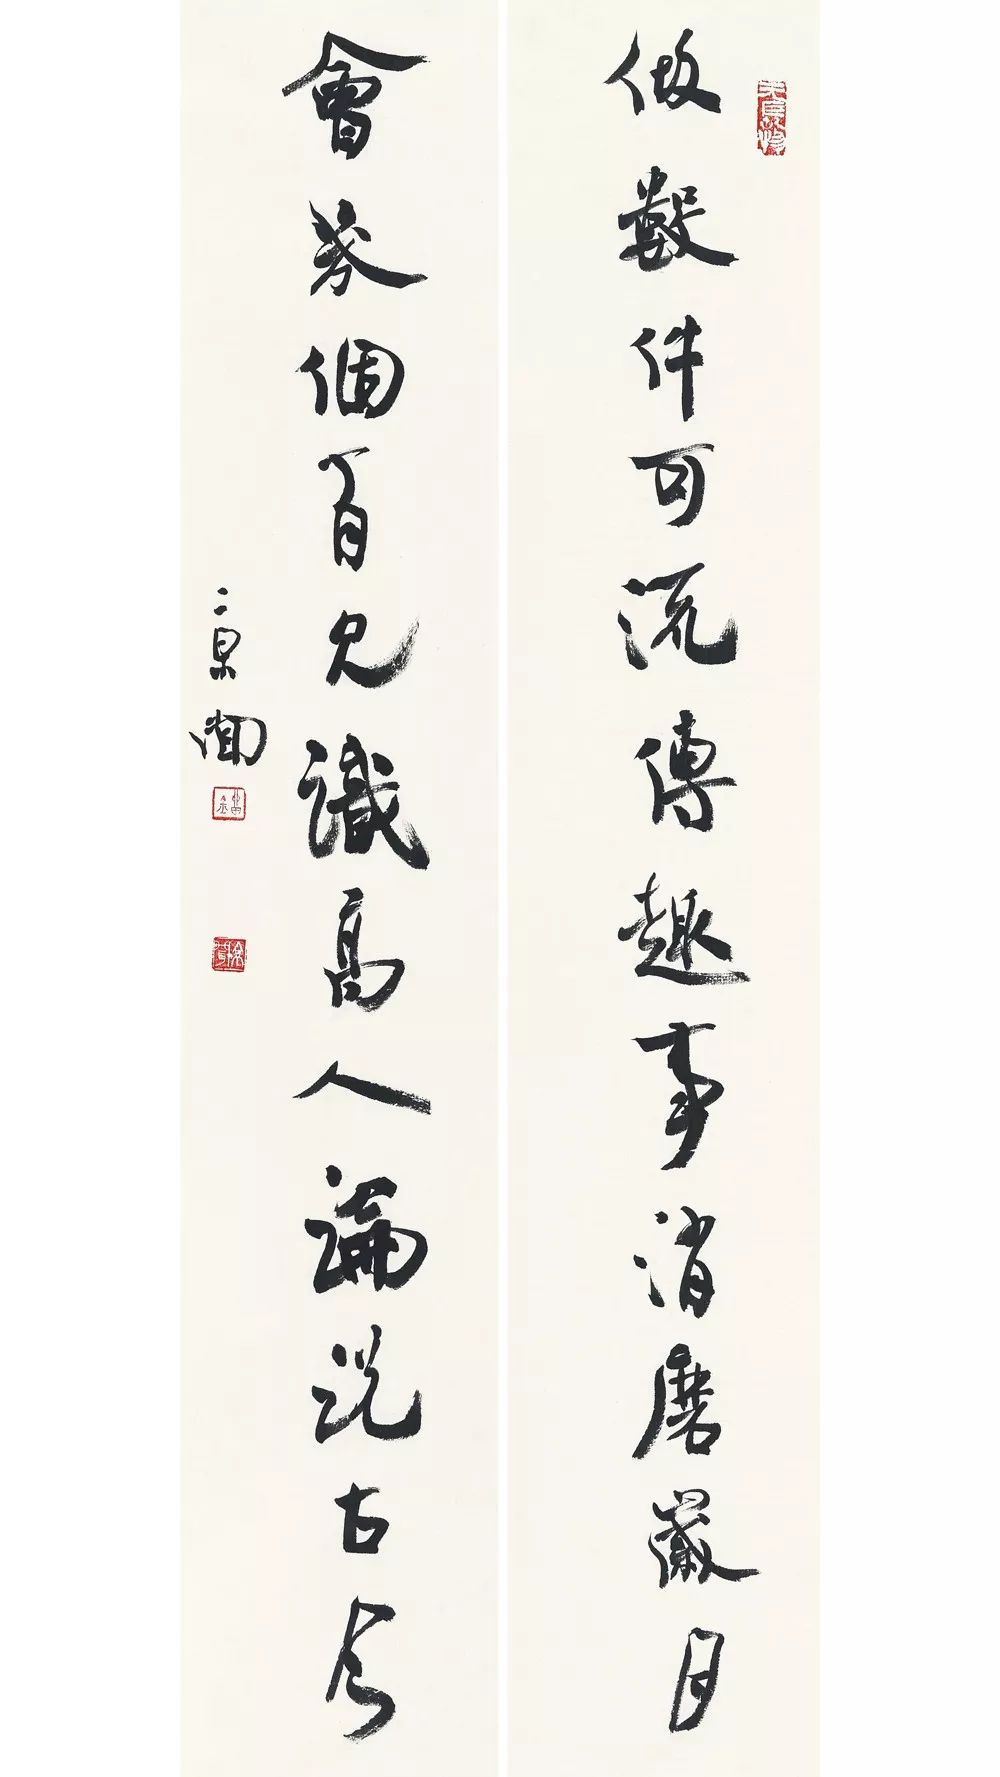 做數件可流傳趣事消磨歲月
會幾個有見識高人論說古今
二泉